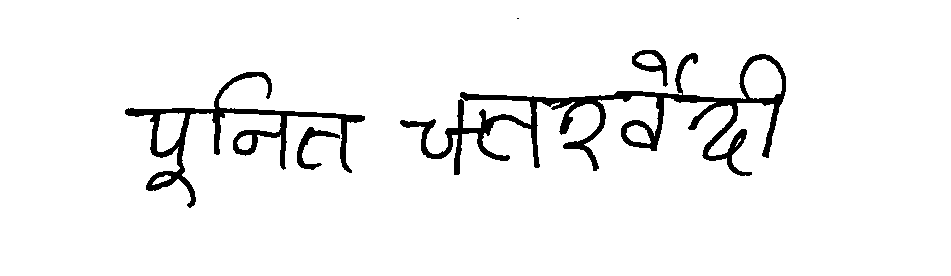 पूनित चतरर्वेदी